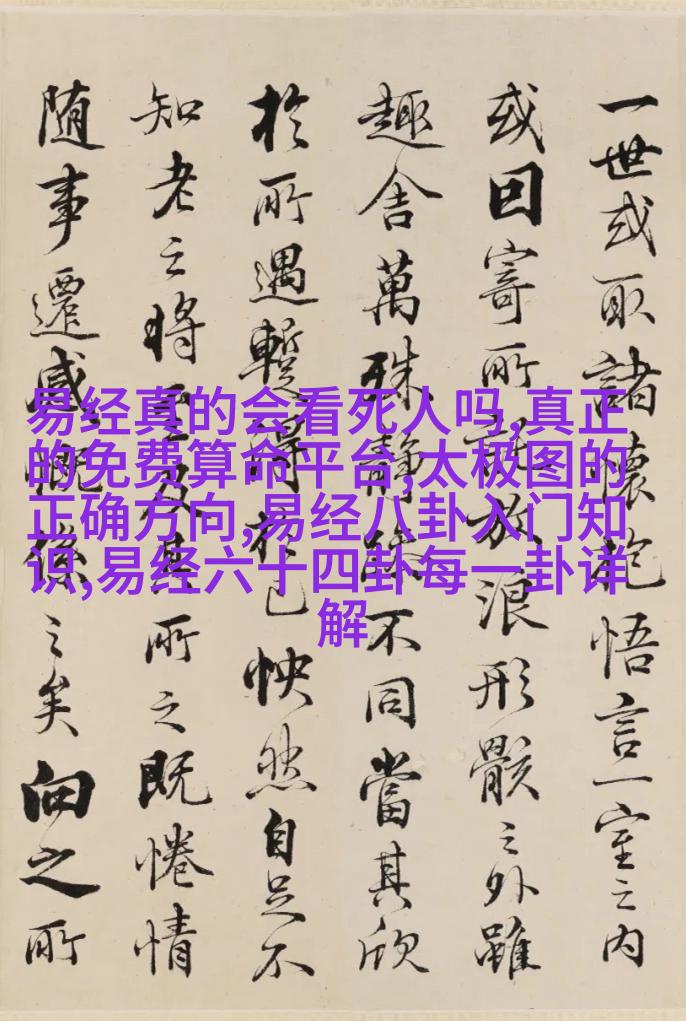 一世或取諸懷抱悟言一室之內
或因寄所託放浪形骸之外雖
趣舍萬殊靜躁不同當其欣
於所遇蹔得於己怏然自足不
知老之將至及其所之既惓情
隨事遷感慨係之矣向之所
易经真的会看死人吗,真正
的免费算命平台,太极图的
正确方向,易经八卦入门知
识,易经六十四卦每一卦详
解